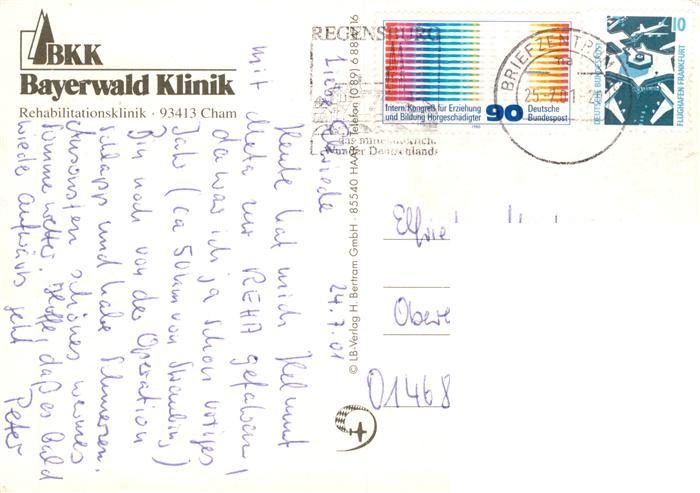 BKK
Bayerwald Klinik
Rehabilitationsklinik · 93413 Cham
REGENSBURG
BRIEFZENTR
25.-7.01
Intern. Kongreß für Erziehung
und Bildung Hörgeschädigter
90
Deutsche
Bundespost
1980
10
DEUTSCHE BUNDESPOST
FLUGHAFEN FRANKFURT
Wunder Deutschlands
© LB-Verlag H. Bertram GmbH · 85540 HAAR · Telefon (0 89)
24.7.01
Liebe
Heute hat mich Helmut
mit Meta zur REHA gefahren!
da war ich ja schon voriges
Jahr (ca 50 km von Straubing)
Bin noch von der Operation
schlapp und habe Schmerzen.
Ansonsten schönes warmes
Sommerwetter. Hoffe, daß es bald
wieder aufwärts geht
Peter
Elfrie
Obere
01468